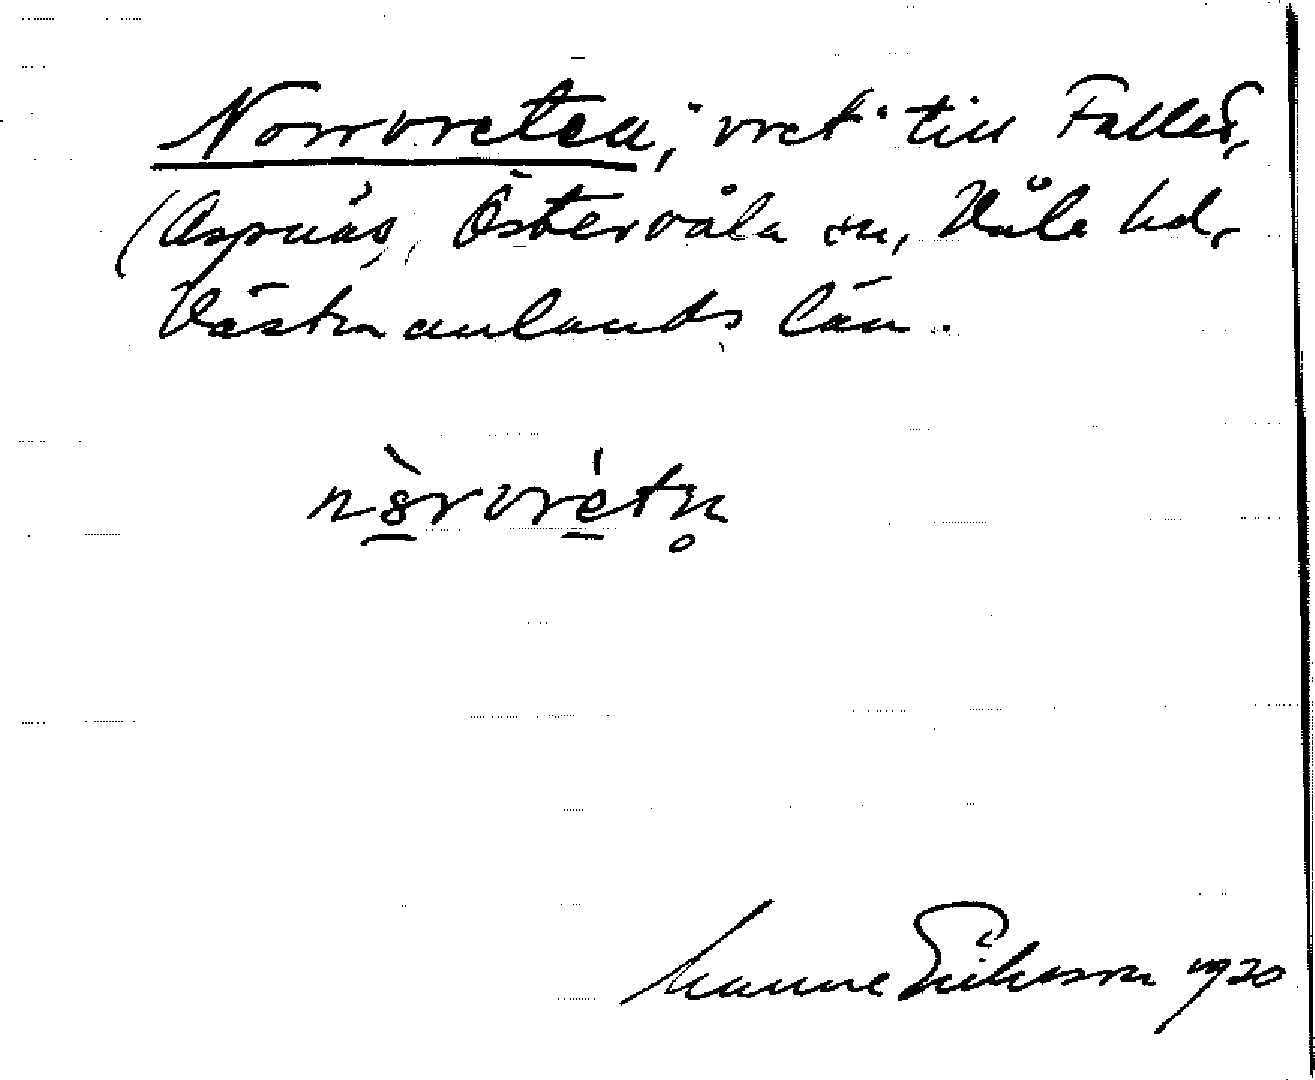 Norrvreten, "vret" till Fallet,
(Aspnäs, Östervåla sn, Våla hd,
Västmanlands län.
Manne Eriksson 1920